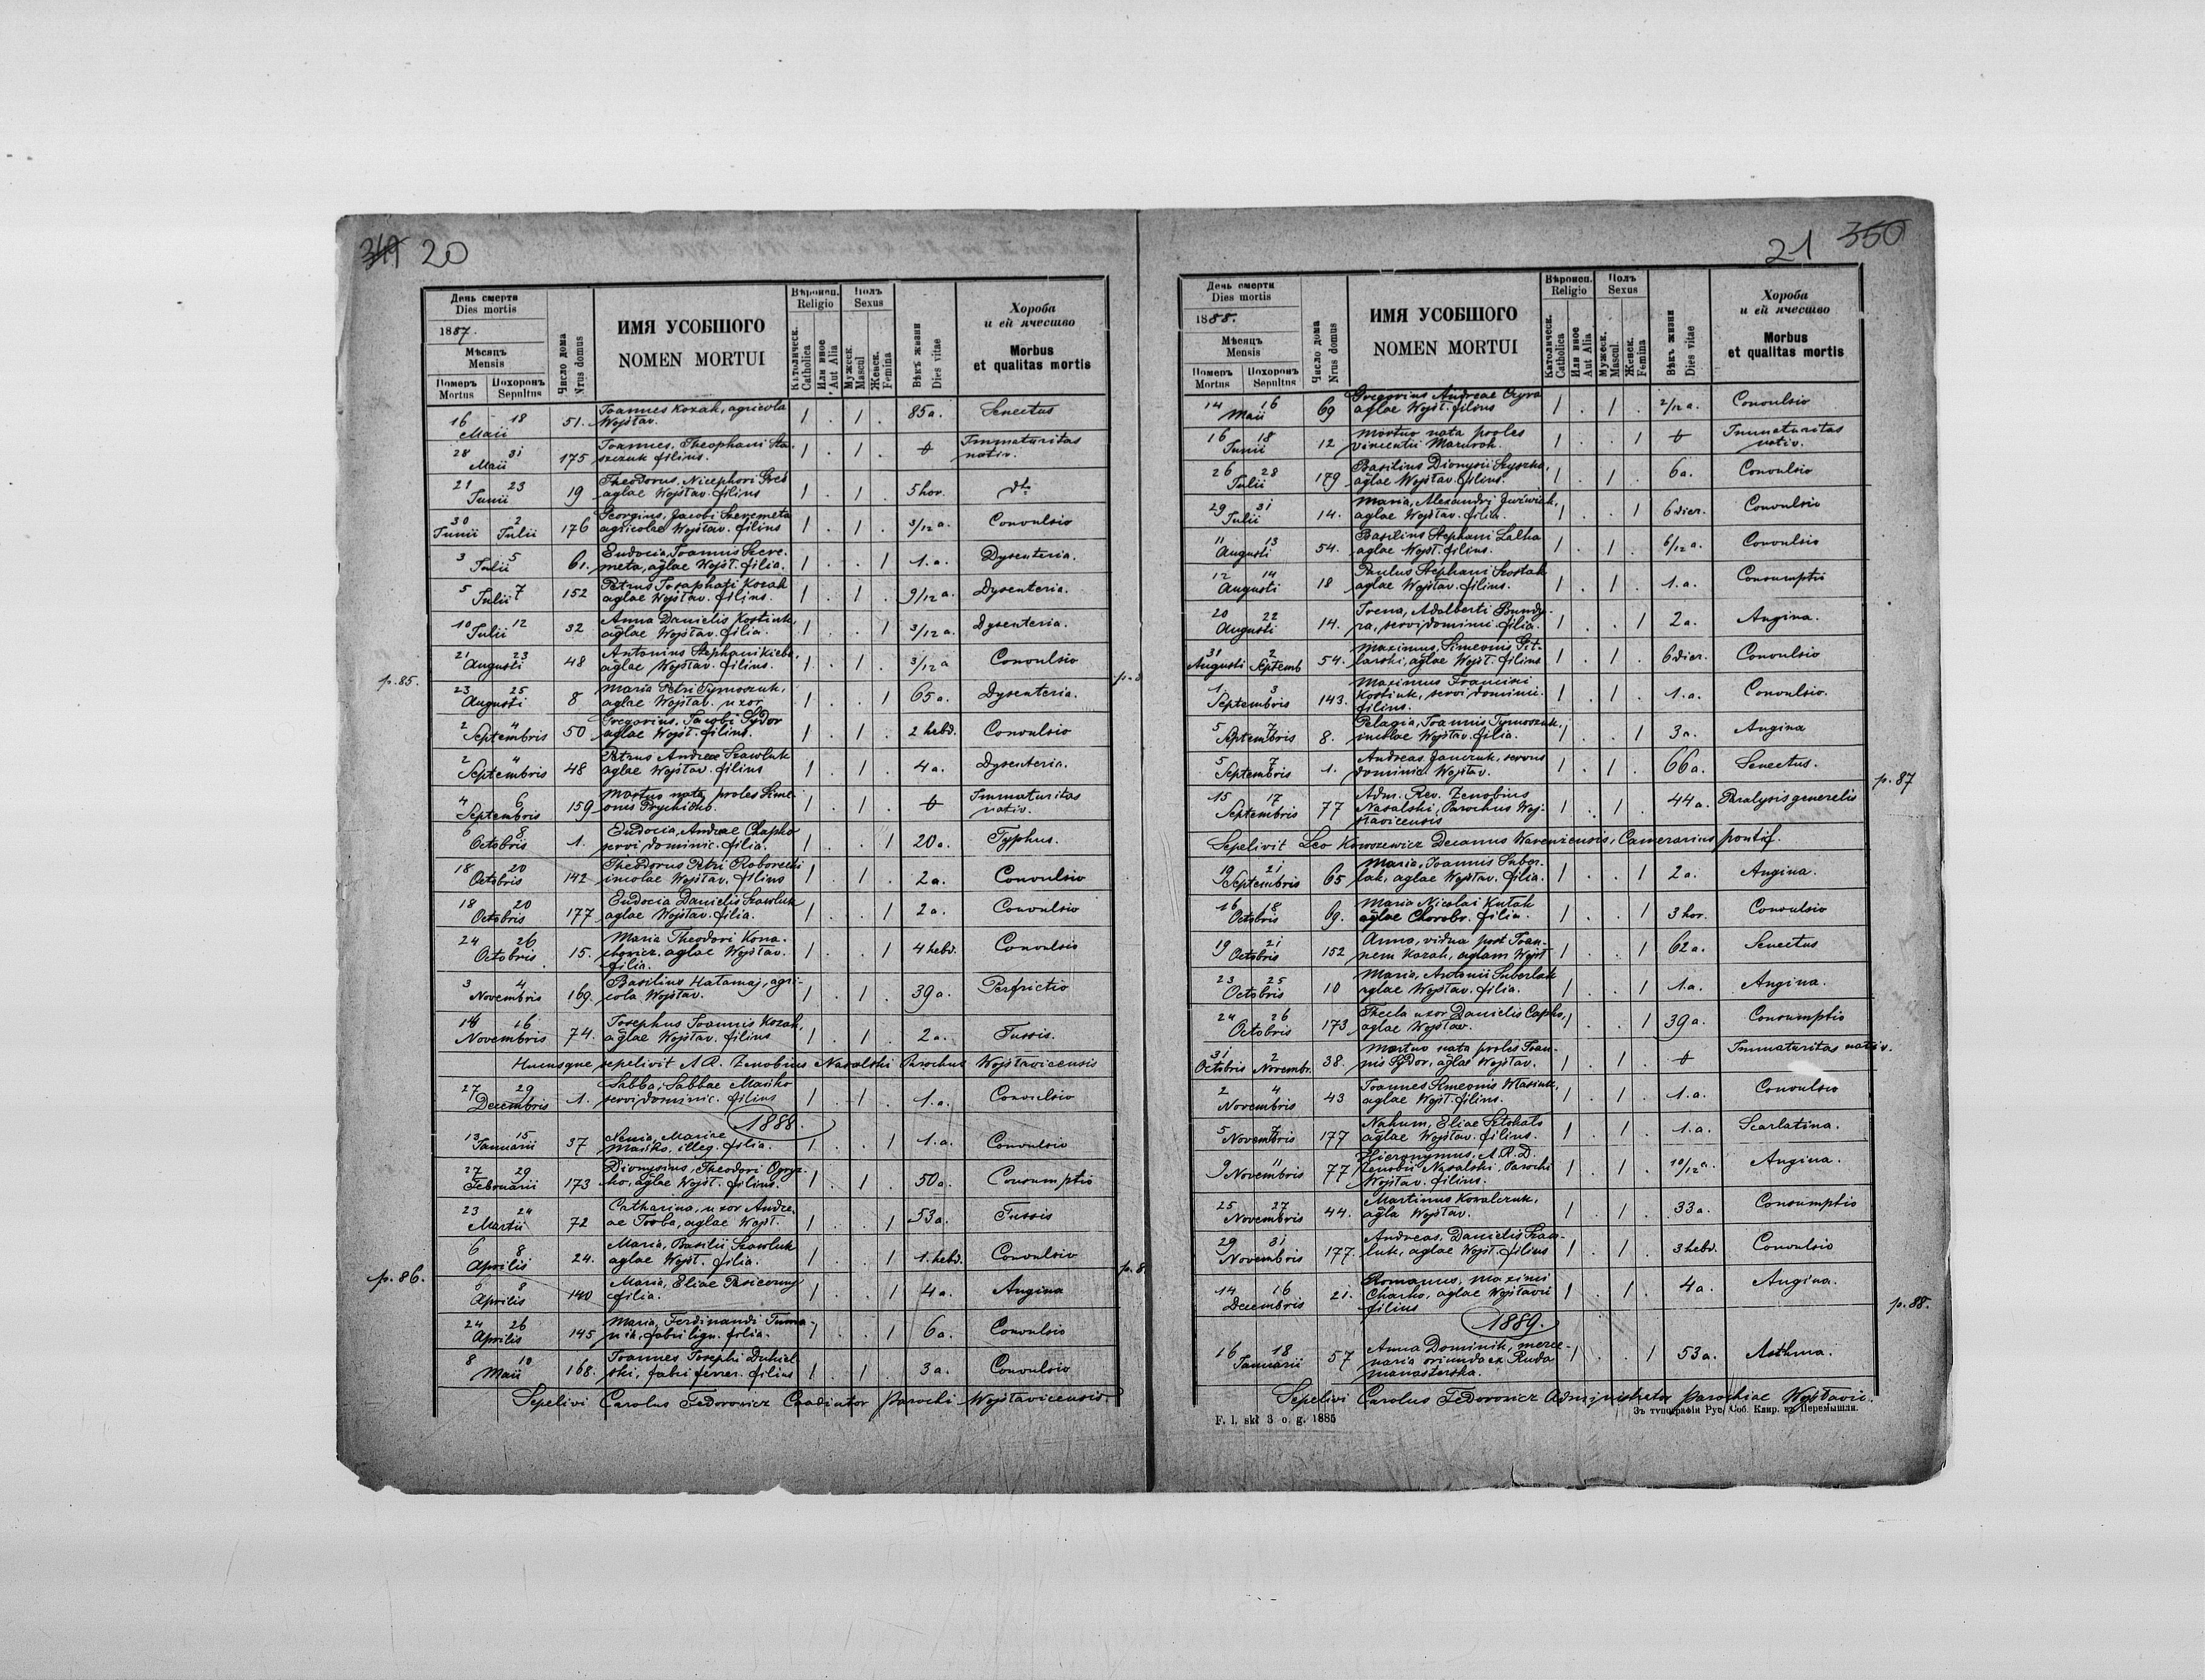 349 20
День смерти
Dies mortis
1887.
Мѣсяцъ
Mensis
Померъ Mortus
Похоронъ Sepultus
Число дома Nrus domus
ИМЯ УСОБШОГО
NOMEN MORTUI
Вѣроисп.
Religio
Католическ. Catholica
Или иное Aut Alia
Полъ
Sexus
Мужеск. Mascul
Женск. Femina
Вѣкъ жизни Dies vitae
Хороба
и ей ячесшво
Morbus
et qualitas mortis
16 18 Maii 51. Joannes Kozak, agricola 1 . 1 . 85a. Senectus
Wojsław.
28 31 Maii 175 Joannes, Theophani Sta- 1 . 1 . Immaturitas
szczuk filius. nativ.
21 23 Junii 19 Theodorus, Nicephori 1 . 1 . 5 hor. dto
aglae Wojsław. filius
30 Junii 2 Julii 176 Georgius, Jacobi Szeremeta 1 . 1 . 3/12 a. Convulsio
agricolae Wojsław. filius
3 5 Julii 61. Eudocia, Joannis Szere- 1 . . 1 1.a. Dysenteria.
meta, aglae Wojsł. filia.
5 7 Julii 152 Petrus Josaphati Kozak 1 . 1 . 9/12 a. Dysenteria.
aglae Wojsław. filius.
10 12 Julii 32 Anna Danielis Kostiuk, 1 . . 1 3/12 a. Dysenteria.
aglae Wojsław. filia.
21 23 Augusti 48 Antonius Stephani 1 . 1 . 3/12 a Convulsio
aglae Wojsław. filius.
p. 85.
23 25 Augusti 8 Maria Petri Tymoszuk, 1 . . 1 65a. Dysenteria.
aglae Wojsław. uxor
2 4 Septembris 50 Gregorius, Jacobi Sydor 1 . 1 . 2 hebd. Convulsio
aglae Wojsł. filius.
2 4 Septembris 48 Petrus Andreae Szawluk 1 . 1 . 4a. Dysenteria.
aglae Wojsław. filius
4 6 Septembris 159 Mortuo nata, proles Sime- 1 . 1 . Immaturitas
onis nativ.
6 8 Octobris 1. Eudocia, Andreae Chapko 1 . . 1 20a. Typhus.
servi dominic. filia.
18 20 Octobris 142 Theodorus Petri 1 . 1 . 2a. Convulsio
incolae Wojsław. filius
18 20 Octobris 177 Eudocia Danielis Szawluk 1 . . 1 2a. Convulsio
aglae Wojsław. filia.
24 26 Octobris 15. Maria Theodori Kona- 1 . . 1 4 hebd. Convulsio
chowicz, aglae Wojsław.
filia.
3 4 Novembris 169. Basilius Hałamaj, agri- 1 . 1 . 39a. Perfrictio
cola Wojsław.
14 16 Novembris 74. Josephus Joannis Kozak, 1 . 1 . 2a. Tussis.
aglae Wojsław. filius
Hucusque sepelivit A.R. Zenobius Nasalski Parochus Wojsławicensis
27 29 Decembris 1. Sabba, Sabbae Masiko 1 . 1 . 1.a. Convulsio
servi dominic. filius
1888.
13 15 Januarii 37 Xenia, Mariae 1 . . 1 1.a. Convulsio
Masiko, illeg. filia.
27 29 Februarii 173 Dionysius, Theodori Ogryz- 1 . 1 . 50a. Consumptio
ko, aglae Wojsł. filius.
23 24 Martii 72 Catharina, uxor Andre- 1 . . 1 53a. Tussis
ae Torba, aglae Wojsł.
6 8 Aprilis 24. Maria, Basilii Szawluk 1 . . 1 1.hebd. Convulsio
aglae Wojsł. filia.
p. 86.
6 8 Aprilis 140 Maria, Eliae 1 . . 1 4a. Angina
filia.
24 26 Aprilis 145 Maria, Ferdinandi 1 . . 1 6a. Convulsio
fabri lign. filia.
8 10 Maii 168. Joannes Josephi Dukiel- 1 . 1 . 3a. Convulsio
ski, fabri ferrar. filius
Sepelivi Carolus Fedorowicz Coadiutor Parochi Wojsławicensis
21 350
День смерти
Dies mortis
1888.
Мѣсяцъ
Mensis
Померъ Mortus
Похоронъ Sepultus
Число дома Nrus domus
ИМЯ УСОБШОГО
NOMEN MORTUI
Вѣроисп.
Religio
Католическ. Catholica
Или иное Aut Alia
Полъ
Sexus
Мужеск. Mascul.
Женск. Femina
Вѣкъ жизни Dies vitae
Хороба
и ей ячесшво
Morbus
et qualitas mortis
14 16 Maii 69 Gregorius Andreae 1 . 1 . 2/12 a. Convulsio
aglae Wojsł. filius
16 18 Junii 12 Mortuo nata proles 1 . . 1 Immaturitas
Vincentii Mazurok. nativ.
26 28 Julii 179 Basilius Dionysii Szyszko, 1 . 1 . 6a. Convulsio
aglae Wojsław. filius.
29 31 Julii 14. Maria, Alexandri 1 . . 1 6 dier. Convulsio
aglae Wojsław. filia.
11 13 Augusti 54. Basilius Stephani Lalka 1 . 1 . 6/12 a. Convulsio
aglae Wojsł. filius.
12 14 Augusti 18 Paulus Stephani Szostak 1 . 1 . 1.a. Consumptio
aglae Wojsław. filius.
20 22 Augusti 14. Irena, Adalberti Bundy- 1 . . 1 2a. Angina.
ra, servi dominii filia.
31 Augusti 2 Septemb 54. Maximus, Simeonis Git- 1 . 1 . 6 dier. Convulsio
larski, aglae Wojsł. filius
1 3 Septembris 143. Maximus Francisci 1 . 1 . 1.a. Convulsio.
Kostiuk, servi dominii.
filius.
5 7 Septembris 8. Pelagia, Joannis Tymoszuk, 1 . . 1 3a. Angina
incolae Wojsław. filia.
5 7 Septembris 1. Andreas Janczuk, servus 1 . 1 . 66a. Senectus.
dominic. Wojsław.
p. 87
15 17 Septembris 77 Adm. Rev. Zenobius 1 . 1 . 44a. Paralysis generelis
Nasalski, Parochus Woj-
sławicensis
Sepelivit Leo Decanus Warenzensis, Camerarius pontif.
19 21 Septembris 65 Maria, Joannis Suber- 1 . . 1 2a. Angina.
lak, aglae Wojsław. filia.
16 18 Octobris 69. Maria Nicolai Kutak 1 . . 1 3 hor. Convulsio
aglae Chorobr. filia.
19 21 Octobris 152 Anna, vidua post Joan- 1 . . 1 62a. Senectus
nem Kozak, aglam Wojsł
23 25 Octobris 10 Maria, Antonii Suberlak 1 . . 1 1.a. Angina.
aglae Wojsław. filia.
24 26 Octobris 173 Thecla uxor Danielis Capko, 1 . . 1 39a. Consumptio
aglae Wojsław.
31 Octobris 2 Novembr. 38. Mortuo nata proles Joan- 1 . 1 . Immaturitas nativ.
nis Sydor, aglae Wojsław.
2 4 Novembris 43 Joannes Simeonis Wasiuk, 1 . 1 . 1.a. Convulsio
aglae Wojsł. filius.
5 7 Novembris 177 Nahum, Eliae 1 . 1 . 1.a. Scarlatina.
aglae Wojsław. filius.
9 11 Novembris 77 Hieronymus, A.R.D. 1 . 1 . 10/12 a. Angina.
Zenobii Nasalski, Parochi
Wojsław. filius.
25 27 Novembris 44. Martinus Kowalczuk, 1 . 1 . 33a. Consumptio
agla Wojsław.
29 31 Novembris 177. Andreas, Danielis Szaw- 1 . 1 . 3 hebd. Convulsio
luk, aglae Wojsł. filius
14 16 Decembris 21. Romanus, Maximi 1 . 1 . 4a. Angina.
Charko, aglae Wojsławi
filius
p. 88.
1889.
16 18 Januarii 57 Anna Dominik, merce- 1 . . 1 53a. Asthma.
naria oriunda ex Ruda
manasterska.
Sepelivi Carolus Fedorowicz Administrator Parochiae Wojsławic.
F. l. skł 3 o. g. 1885
Зъ типографіи Рус. Соб. Клир. въ Перемышли.